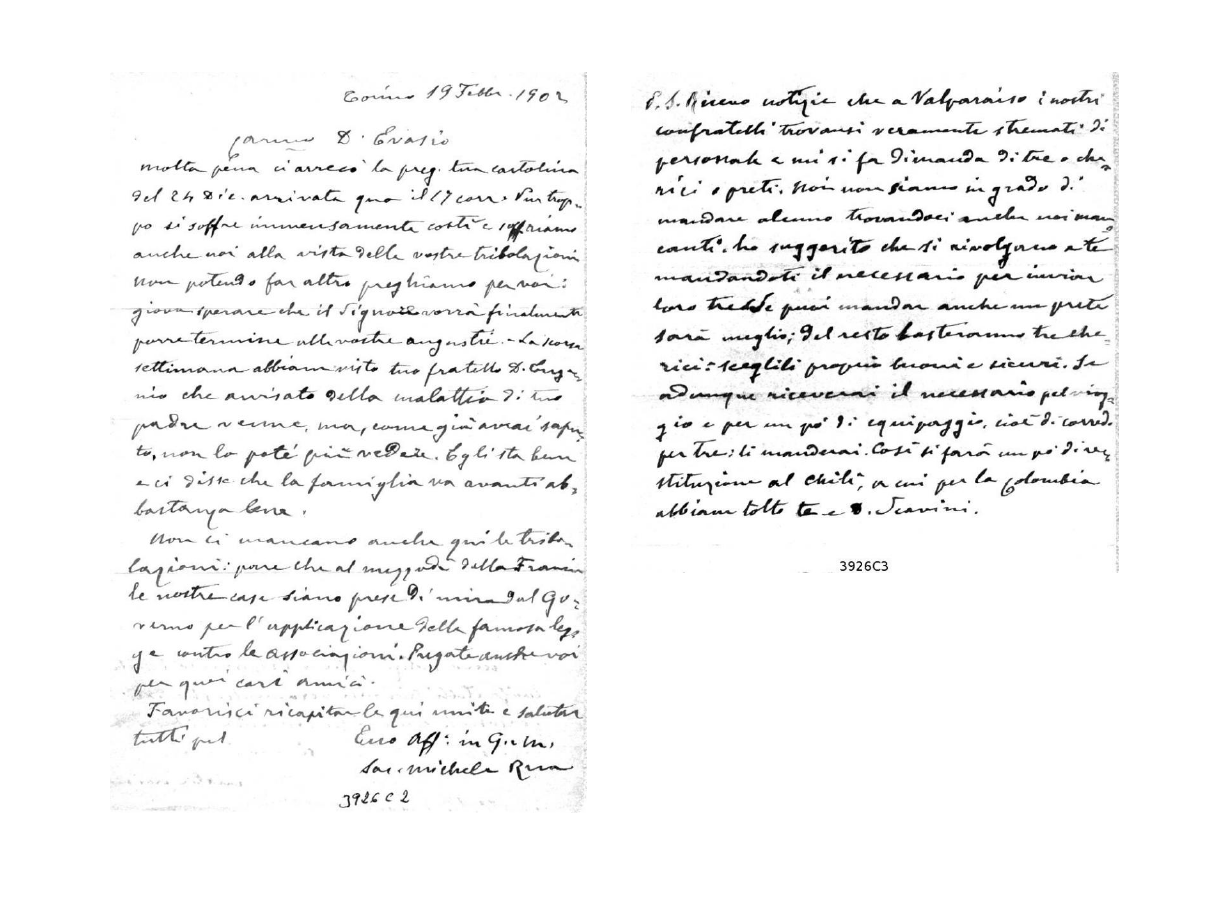 Torino 19 Febbr. 1902
Carmo D. Evasio
molta pena ci arrecò la preg. tua cartolina
del 24 Dic. arrivata qua il 17 corr. Purtrop-
po si soffre immensamente costì e soffriamo
anche noi alla vista delle vostre tribolazioni
non potendo far altro preghiamo per voi:
giova sperare che il Signore vorrà finalmente
porre termine alle vostre angustie. - La scorsa
settimana abbiam visto tuo fratello D. Euge-
nio che avvisato della malattia di tuo
padre venne, ma, come già avrai sapu-
to, non lo poté più vedere. Egli sta bene
e ci disse che la famiglia va avanti ab-
bastanza bene.
Non ci mancano anche qui le tribo-
lazioni: pare che al mezzodì della Francia
le nostre case siano prese di mira dal Go-
verno per l'applicazione della famosa leg-
ge contro le associazioni. Pregate anche voi
per quei cari amici.
Favorisci ricapitar le qui unite e salutar
tutti pel
Tuo Aff: in G. e M.
Sac. Michele Rua
3926C2
P.S. Ricevo notizie che a Valparaiso i nostri
confratelli trovansi veramente stremati di
personale e mi si fa dimanda di tre o che-
rici o preti. Noi non siamo in grado di
mandare alcuno trovandoci anche noi man-
canti. ho suggerito che si rivolgano a te
mandandoti il necessario per inviar
loro tre. Se puoi mandar anche un prete
sarà meglio; del resto basteranno tre che-
rici: sceglili proprio buoni e sicuri. Se
adunque riceverai il necessario pel viag-
gio e per un po' di equipaggio, cioè di corredo
per tre: li manderai. Così si farà un po' di re-
stituzione al Chilì, a cui per la Colombia
abbiam tolto te e D. Scavini.
3926C3